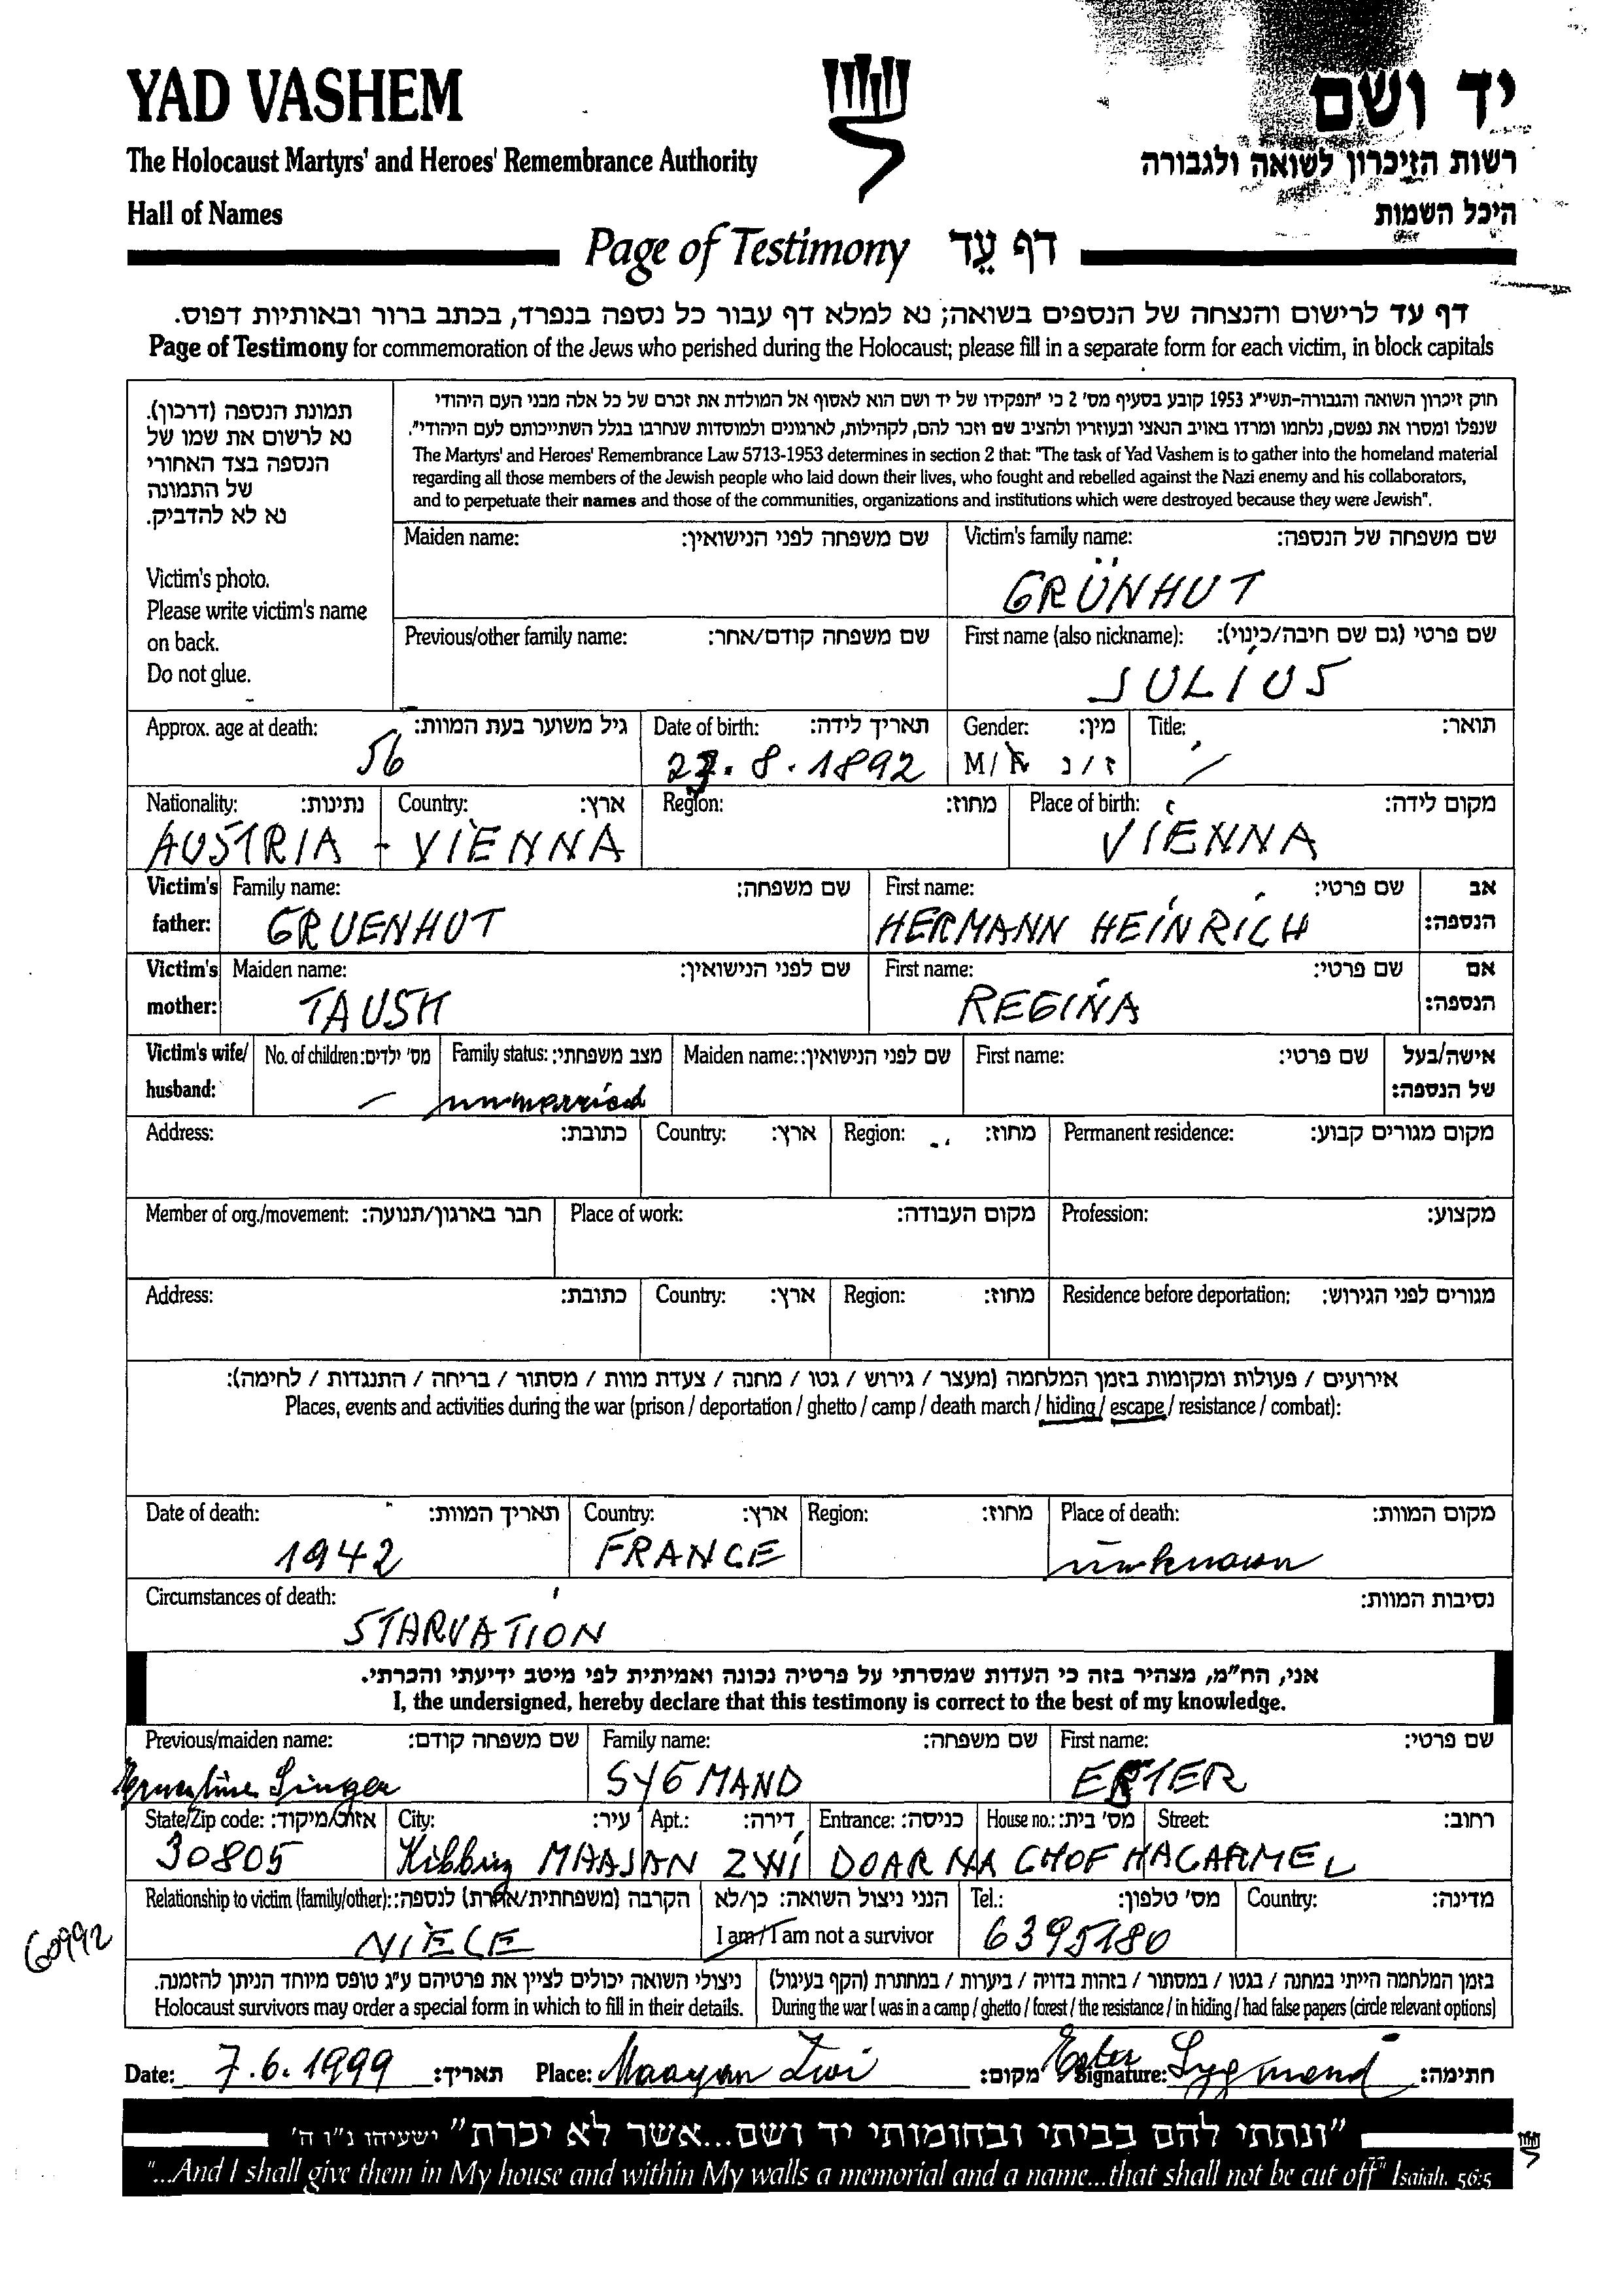 YAD VASHEM
יד ושם
The Holocaust Martyrs' and Heroes' Remembrance Authority
רשות הזיכרון לשואה ולגבורה
Hall of Names
היכל השמות
Page of Testimony דף עֵד
דף עד לרישום והנצחה של הנספים בשואה; נא למלא דף עבור כל נספה בנפרד, בכתב ברור ובאותיות דפוס.
Page of Testimony for commemoration of the Jews who perished during the Holocaust; please fill in a separate form for each victim, in block capitals
תמונת הנספה (דרכון).
נא לרשום את שמו של
הנספה בצד האחורי
של התמונה
נא לא להדביק.
Victim's photo.
Please write victim's name
on back.
Do not glue.
חוק זיכרון השואה והגבורה-תשי"ג 1953 קובע בסעיף מס' 2 כי "תפקידו של יד ושם הוא לאסוף אל המולדת את זכרם של כל אלה מבני העם היהודי
שנפלו ומסרו את נפשם, נלחמו ומרדו באויב הנאצי ובעוזריו ולהציב שם וזכר להם, לקהילות, לארגונים ולמוסדות שנחרבו בגלל השתייכותם לעם היהודי".
The Martyrs' and Heroes' Remembrance Law 5713-1953 determines in section 2 that: "The task of Yad Vashem is to gather into the homeland material
regarding all those members of the Jewish people who laid down their lives, who fought and rebelled against the Nazi enemy and his collaborators,
and to perpetuate their names and those of the communities, organizations and institutions which were destroyed because they were Jewish".
Maiden name: שם משפחה לפני הנישואין: Victim's family name: שם משפחה של הנספה:
GRÜNHUT
Previous/other family name: שם משפחה קודם/אחר: First name (also nickname): שם פרטי (גם שם חיבה/כינוי):
JULIUS
Approx. age at death: גיל משוער בעת המוות: Date of birth: תאריך לידה: Gender: מין: Title: תואר:
56 27.8.1892 M/F ז/נ /
Nationality: נתינות: Country: ארץ: Region: מחוז: Place of birth: מקום לידה:
AUSTRIA - VIENNA VIENNA
Victim's father: Family name: שם משפחה: First name: שם פרטי: אב הנספה:
GRUENHUT HERMANN HEINRICH
Victim's mother: Maiden name: שם לפני הנישואין: First name: שם פרטי: אם הנספה:
TAUSK REGINA
Victim's wife/ husband: No. of children: מס' ילדים: Family status: מצב משפחתי: Maiden name: שם לפני הנישואין: First name: שם פרטי: אישה/בעל של הנספה:
– unmarried
Address: כתובת: Country: ארץ: Region: מחוז: Permanent residence: מקום מגורים קבוע:
Member of org./movement: חבר בארגון/תנועה: Place of work: מקום העבודה: Profession: מקצוע:
Address: כתובת: Country: ארץ: Region: מחוז: Residence before deportation: מגורים לפני הגירוש:
אירועים / פעולות ומקומות בזמן המלחמה (מעצר / גירוש / גטו / מחנה / צעדת מוות / מסתור / בריחה / התנגדות / לחימה):
Places, events and activities during the war (prison / deportation / ghetto / camp / death march / hiding / escape / resistance / combat):
Date of death: תאריך המוות: Country: ארץ: Region: מחוז: Place of death: מקום המוות:
1942 FRANCE unknown
Circumstances of death: נסיבות המוות:
STARVATION
אני, הח"מ, מצהיר בזה כי העדות שמסרתי על פרטיה נכונה ואמיתית לפי מיטב ידיעתי והכרתי.
I, the undersigned, hereby declare that this testimony is correct to the best of my knowledge.
Previous/maiden name: שם משפחה קודם: Family name: שם משפחה: First name: שם פרטי:
Ernestine Singer SYGMAND ESTER
State/Zip code: אזור/מיקוד: City: עיר: Apt.: דירה: Entrance: כניסה: House no.: מס' בית: Street: רחוב:
30805 Kibbuz MAAJAN ZWI DOAR NA CHOF HACARMEL
Relationship to victim (family/other): הקרבה (משפחתית/אחרת) לנספה: הנני ניצול השואה: כן/לא Tel.: מס' טלפון: Country: מדינה:
NIECE I am/I am not a survivor 6395180
60992
ניצולי השואה יכולים לציין את פרטיהם ע"ג טופס מיוחד הניתן להזמנה. בזמן המלחמה הייתי במחנה / בגטו / במסתור / בזהות בדויה / ביערות / במחתרת (הקף בעיגול)
Holocaust survivors may order a special form in which to fill in their details. During the war I was in a camp / ghetto / forest / the resistance / in hiding / had false papers (circle relevant options)
Date: 7.6.1999 תאריך: Place: Maayan Zwi מקום: Signature: Ester Sygmand חתימה:
"ונתתי להם בביתי ובחומותי יד ושם...אשר לא יכרת" ישעיהו נ"ו ה'
"...And I shall give them in My house and within My walls a memorial and a name...that shall not be cut off" Isaiah. 56:5